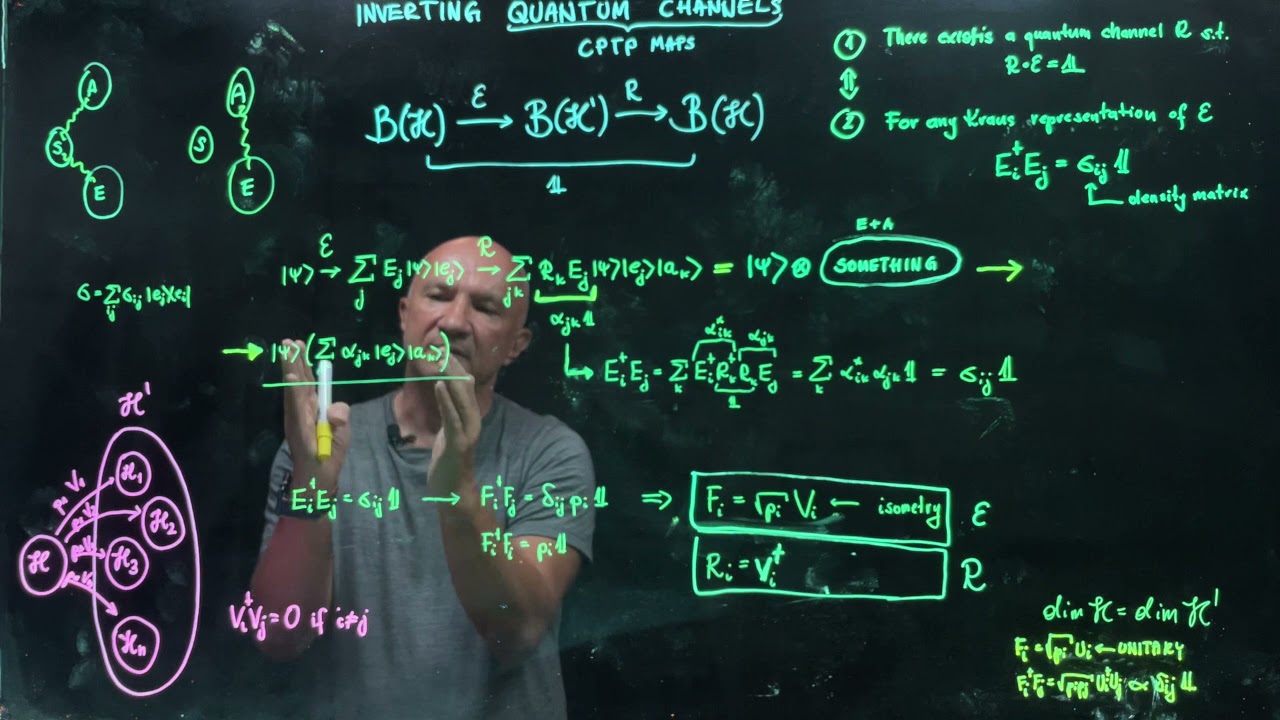 INVERTING QUANTUM CHANNELS
CPTP MAPS
B(ℋ) —ℰ→ B(ℋ') —R→ B(ℋ)
𝟙
① There exists a quantum channel R s.t.
R∘ℰ = 𝟙
⇕
② For any Kraus representation of ℰ
E_i† E_j = σ_ij 𝟙
density matrix
A
S
E
A
S
E
σ = ∑_ij σ_ij |e_j⟩⟨e_i|
|Ψ⟩ —ℰ→ ∑_j E_j |Ψ⟩|e_j⟩ —R→ ∑_jk R_k E_j |Ψ⟩|e_j⟩|a_k⟩ = |Ψ⟩ ⊗ SOMETHING →
E+A
α_jk 𝟙
→ |Ψ⟩ (∑ α_jk |e_j⟩|a_k⟩)
↳ E_i† E_j = ∑_k E_i† R_k† R_k E_j = ∑_k α*_ik α_jk 𝟙 = σ_ij 𝟙
α*_ik α_jk
𝟙
E_i† E_j = σ_ij 𝟙 → F_i† F_j = δ_ij p_i 𝟙 ⇒ F_i = √p_i V_i ← isometry ℰ
F_i† F_i = p_i 𝟙
R_i = V_i† R
ℋ'
ℋ
p₁ V₁
p₂ V₂
p₃ V₃
ℋ₁
ℋ₂
ℋ₃
ℋn
V_i† V_j = 0 if i≠j
dim ℋ = dim ℋ'
F_i = √p_i U_i ← UNITARY
F_i† F_j = √p_i p_j U_i† U_j ∝ δ_ij 𝟙